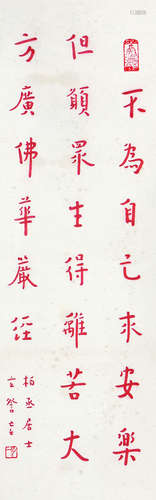 不為自己求安樂
但願眾生得離苦
大方廣佛華嚴經
柏丞居士